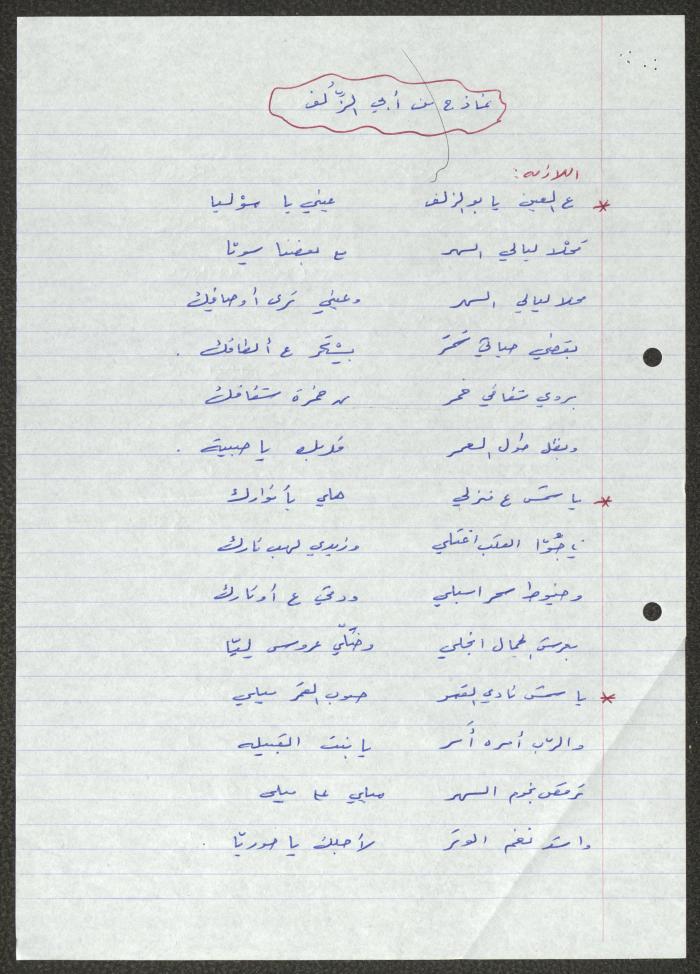 نماذج من أبي الزُّلف
اللازمة:
* ع العين يا بو الزلف عيني يا موْليا
مَحْلا ليالي السهر مع بعضنا سويّا
محلا ليالي السهر وعيني ترى أوصافك
بقضي حياتي سَحَر بِسْحَر ع ألطافك .
بروي شفافي خمر من خمرة شفافك
وبضل طول العمر قلبك يا حبيبة .
* يا شمس ع منزلي هلي بأنوارك
جُوّا القلب اغتلي وزيدي لهب نارك
وخيوط سحر اسبلي ودقي ع أوتارك
بعرش الجمال انجلي وضَلّي عروس ليّا
* يا شمس نادي القمر صوب القمر ميلي
والربّ أمره أَمر يا بنت القبيله
ترقص نجوم السهر ميلي على ميلي
واشتد نغم الوتر لأجلك يا حوريّا .